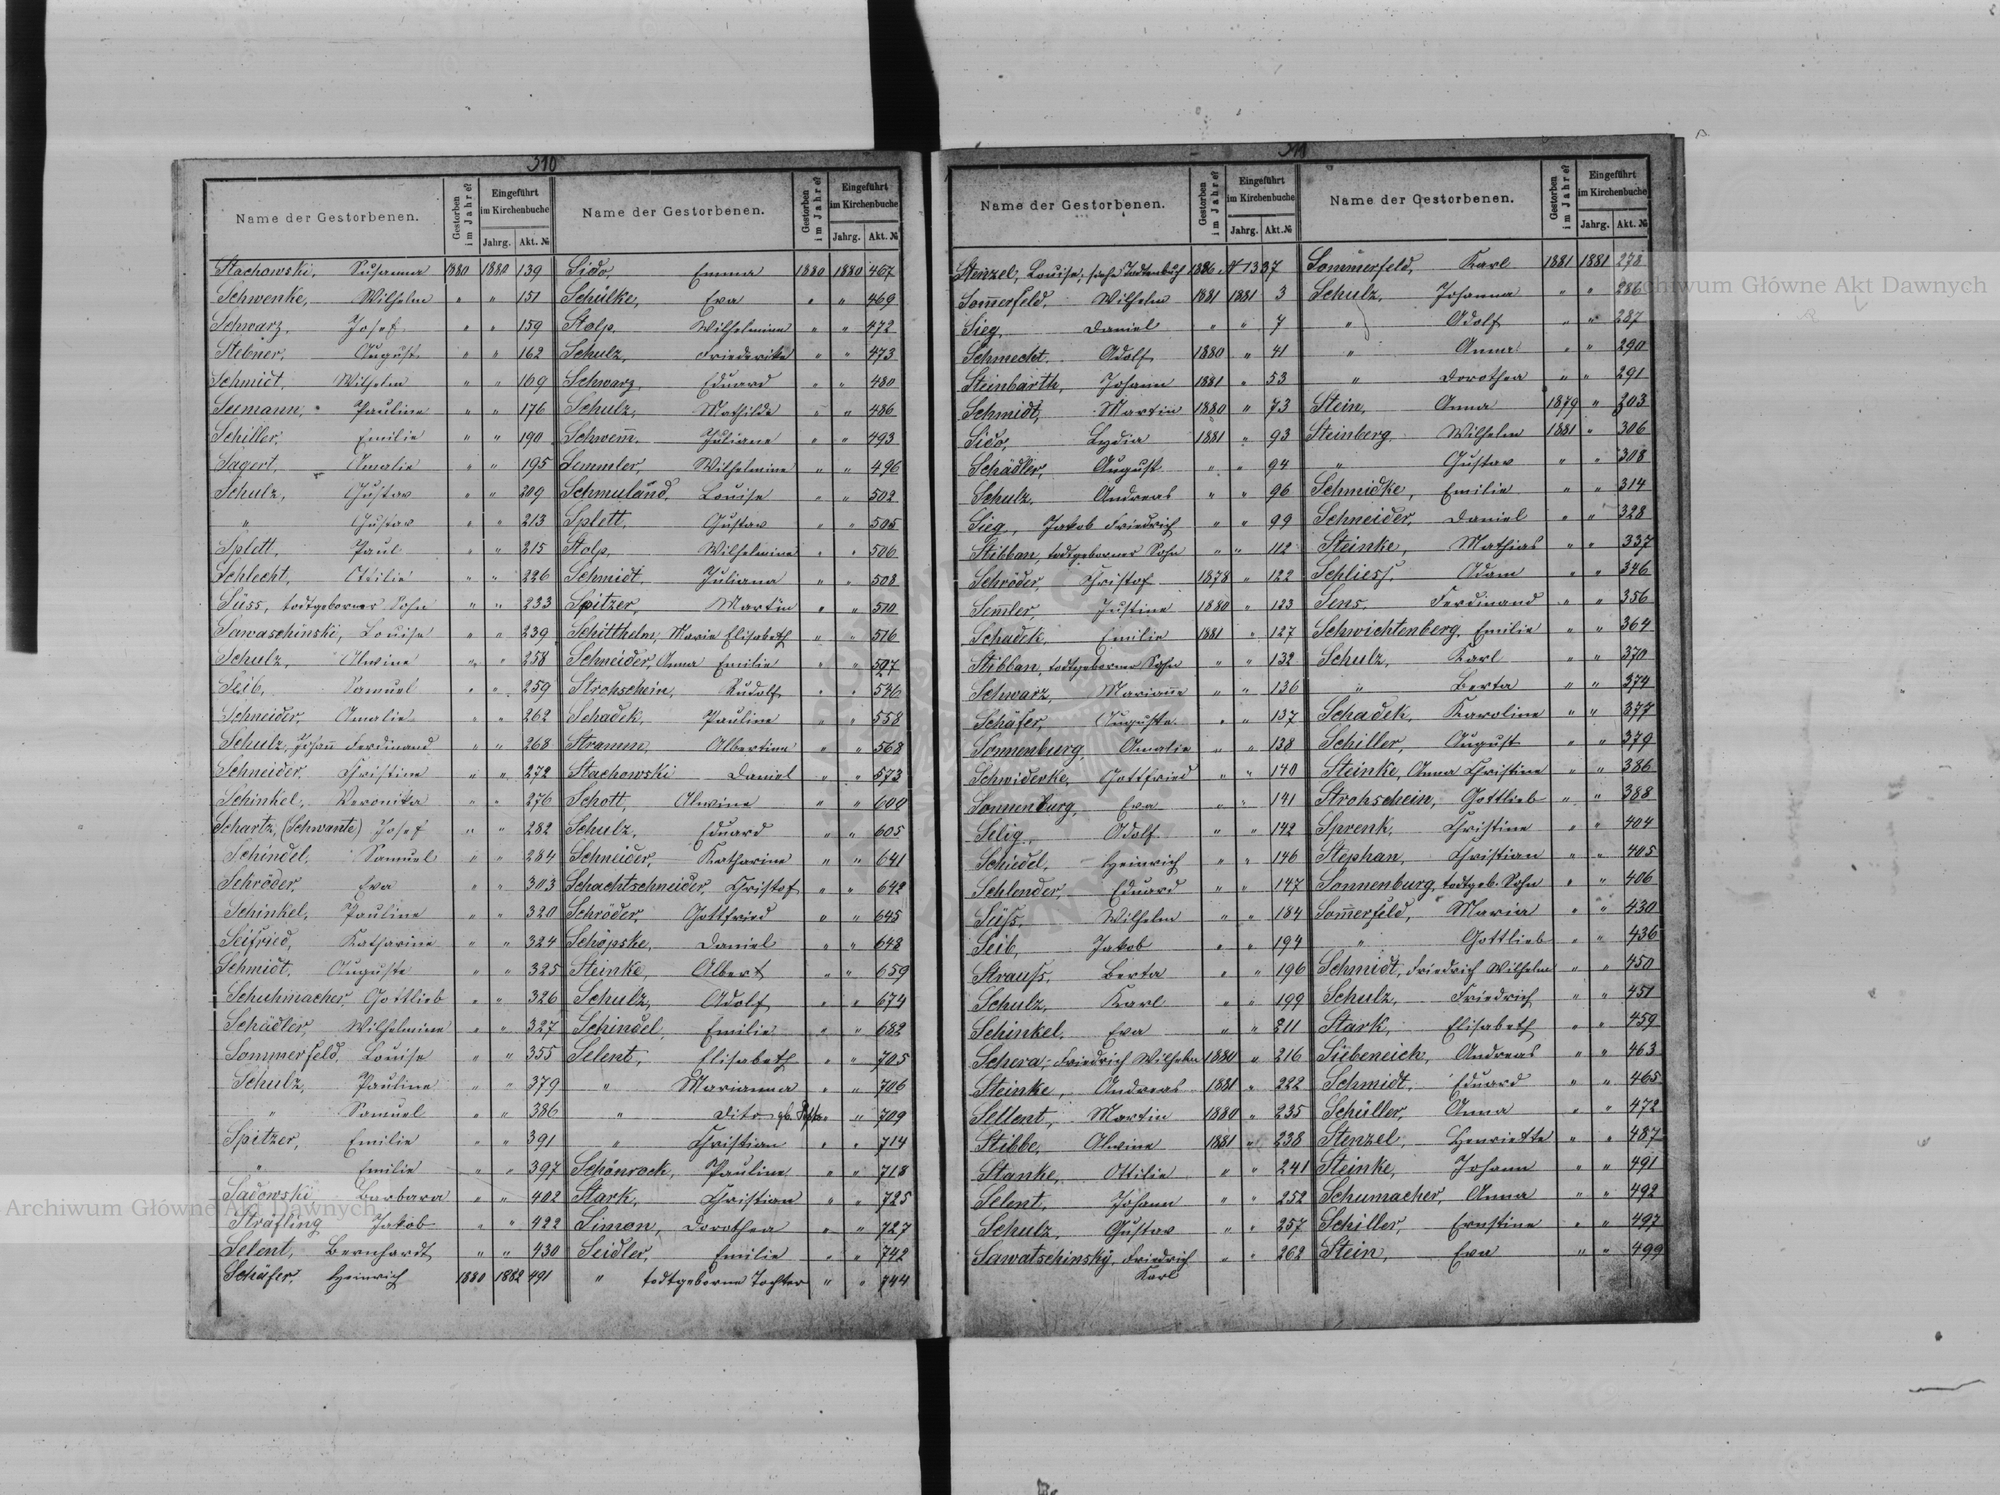 310
Name der Gestorbenen. Gestorben im Jahre? Eingeführt im Kirchenbuche Jahrg. Akt. №
Stachowski, Susanna 1880 1880 139
Schwenke, Wilhelm " " 151
Schwarz, Josef " " 159
Stebner, August " " 162
Schmidt, Wilhelm " " 169
Seemann, Pauline " " 176
Schiller, Emilie " " 190
Sagert, Amalie " " 195
Schulz, Gustav " " 209
" Gustav " " 213
Splett, Paul " " 215
Schlecht, Ottilie " " 226
Süss, todtgeborner Sohn " " 233
Sawaschinski, Louise " " 239
Schulz, Alwine " " 258
Seib, Samuel " " 259
Schneider, Amalie " " 262
Schulz, Johann Ferdinand " " 268
Schneider, Christine " " 272
Schinkel, Veronika " " 276
Schartz, (Schwante) Josef " " 282
Schindel, Samuel " " 284
Schröder, Eva " " 303
Schinkel, Pauline " " 320
Seifried, Katharine " " 324
Schmidt, Auguste " " 325
Schuhmacher, Gottlieb " " 326
Schädler, Wilhelmine " " 327
Sommerfeld, Louise " " 355
Schulz, Pauline " " 379
" Samuel " " 386
Spitzer, Emilie " " 391
" Emilie " " 397
Sadowski, Barbara " " 402
Sträfling Jakob " " 422
Selent, Bernhardt " " 430
Schäfer, Heinrich 1880 1882 491
Name der Gestorbenen. Gestorben im Jahre? Eingeführt im Kirchenbuche Jahrg. Akt. №
Sido, Emma 1880 1880 467
Schülke, Eva " " 469
Stolp, Wilhelmine " " 472
Schulz, Friederike " " 473
Schwarz, Eduard " " 480
Schulz, Mathilde " " 486
Schwem̅, Juliane " " 493
Semmler, Wilhelmine " " 496
Schmuland, Louise " " 502
Splett, Gustav " " 505
Stolp, Wilhelmine " " 506
Schmidt, Juliana " " 508
Spitzer, Martin " " 510
Schitthelm, Marie Elisabeth " " 516
Schneider, Anna Emilie " " 527
Strohschein, Rudolf " " 536
Schadek, Pauline " " 558
Stramm, Albertine " " 568
Stachowski Daniel " " 573
Schott, Alwine " " 600
Schulz, Eduard " " 605
Schneider, Katharine " " 641
Schachtschneider, Christof " " 642
Schröder Gottfried " " 645
Schöpske, Daniel " " 648
Steinke, Albert " " 659
Schulz, Adolf " " 674
Schindel, Emilie " " 682
Selent, Elisabeth " " 705
" Marianna " " 706
" dito " " 709
" Christian " " 714
Schönrock, Pauline " " 718
Stark, Christian " " 725
Simon, Dorothea " " 727
Seidler, Emilie " " 742
" todtgeborne Tochter " " 744
311
Name der Gestorbenen. Gestorben im Jahre? Eingeführt im Kirchenbuche Jahrg. Akt. №
Stenzel, Louise, siehe Todtenbuch 1886 № 1337
Som̅erfeld, Wilhelm 1881 1881 3
Sieg, Daniel " " 7
Schmecht, Adolf 1880 " 41
Steinbarth, Johann 1881 " 53
Schmidt, Martin 1880 " 73
Sido, Lydia 1881 " 93
Schädler, August " " 94
Schulz, Andreas " " 96
Sieg, Jakob Friedrich " " 99
Stibban, todtgeborner Sohn " " 112
Schröder, Christof 1878 " 122
Sem̅ler, Justine 1880 " 123
Schadek, Emilie 1881 " 127
Stibban, todtgeborner Sohn " " 132
Schwarz, Marianne " " 136
Schäfer, Auguste " " 137
Sonnenburg, Amalie " " 138
Schwiderke, Gottfried " " 140
Sonnenburg, Eva " " 141
Selig, Adolf " " 142
Schiedel, Heinrich " " 146
Schlender, Eduard " " 147
Süss, Wilhelm " " 184
Seib, Jakob " " 194
Strauss, Berta " " 196
Schulz, Karl " " 199
Schinkel, Eva " " 211
Schera, Friedrich Wilhelm 1880 " 216
Steinke, Andreas 1881 " 222
Sellent, Martin 1880 " 235
Stibbe, Alwine 1881 " 238
Stanke, Ottilie " " 241
Selent, Johann " " 252
Schulz, Gustav " " 257
Sawatschinsky, Friedrich " " 262
Karl
Name der Gestorbenen. Gestorben im Jahre? Eingeführt im Kirchenbuche Jahrg. Akt. №
Sommerfeld, Karl 1881 1881 278
Schulz, Johanna " " 286
" Adolf " " 287
" Anna " " 290
" Dorothea " " 291
Stein, Anna 1879 " 303
Steinberg Wilhelm 1881 " 306
" Gustav " " 308
Schmidke, Emilie " " 314
Schneider, Daniel " " 328
Steinke, Mathias " " 337
Schliess, Adam " " 346
Sens, Ferdinand " " 356
Schwichtenberg, Emilie " " 364
Schulz, Karl " " 370
" Berta " " 374
Schadek, Karoline " " 377
Schiller, August " " 379
Steinke, Anna Christine " " 386
Strohschein, Gottlieb " " 388
Sprenk, Christine " " 404
Stephan, Christian " " 405
Sonnenburg, todtgeb. Sohn " " 406
Som̅erfeld, Maria " " 430
" Gottlieb " " 436
Schmidt, Friedrich Wilhelm " " 450
Schulz, Friedrich " " 451
Stark, Elisabeth " " 459
Siebeneich, Andreas " " 463
Schmidt, Eduard " " 465
Schüller, Anna " " 472
Stenzel, Henriette " " 487
Steinke, Johann " " 491
Schumacher, Anna " " 492
Schiller, Ernstine " " 497
Stein, Eva " " 499
Archiwum Główne Akt Dawnych
Archiwum Główne Akt Dawnych